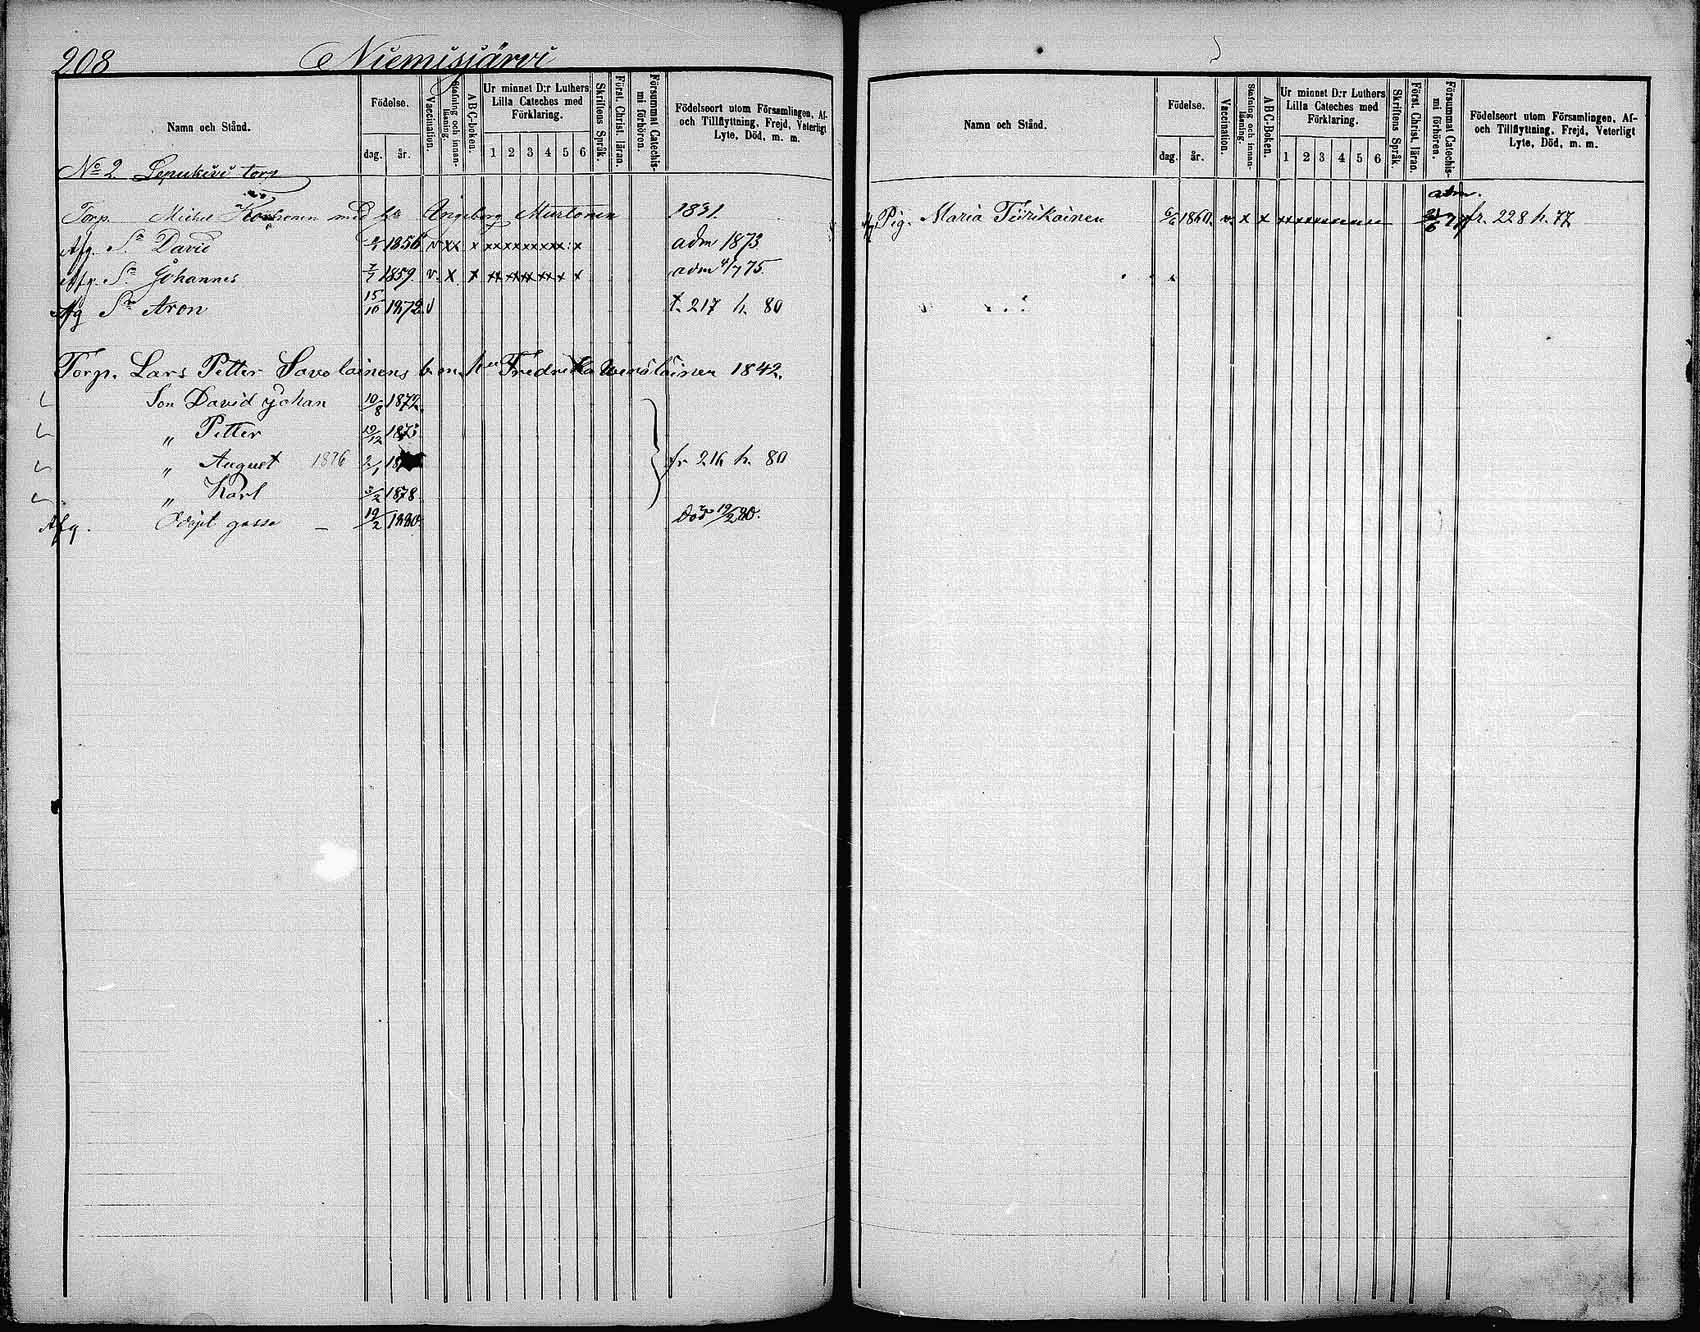 208 Niemisjärvi
Namn och Stånd.
Födelse.
dag. år.
Vaccination.
Stafning och innanläsning.
ABC-boken.
Ur minnet D:r Luthers Lilla Cateches med Förklaring.
1 2 3 4 5 6
Skriftens Språk.
Först. Christ. läran.
Försummat Catechismi förhören.
Födelseort utom Församlingen, Af- och Tillflyttning, Frejd, Veterligt Lyte, Död, m. m.
No 2 Lepukivi torp
Torp. Michel med h. Angeborg Murtonen 1831.
Afg. Sn David 1856 v xx x xxxxxxxxx x adm 1873
Afg. Sn Johannes 1859. v. x x xx xxx xx x x adm 4/7 75.
Afg Sn Aron 15/10 1872. v t. 217 h. 80
Torp. Lars Petter Savolainens b. m. hu Fredrika 1842.
Son David Johan 10/8 1872.
„ Petter /12 1873
„ August 1876 2/1 fr 216 h. 80
„ Karl 3/2 1878
Afg. Odöpt gosse — 19/2 1880. Död 19/2 80.
Namn och Stånd.
Födelse.
dag. år.
Vaccination.
Stafning och innanläsning.
ABC-Boken.
Ur minnet D:r Luthers Lilla Cateches med Förklaring.
1 2 3 4 5 6
Skriftens Språk.
Först. Christ. läran.
Försummat Catechismi förhören.
Födelseort utom Församlingen, Af- och Tillflyttning, Frejd, Veterligt Lyte, Död, m. m.
adm.
Pig. Maria Tiirikainen 1860. v. x x xxxxxxxxx fr. 228 h. 77